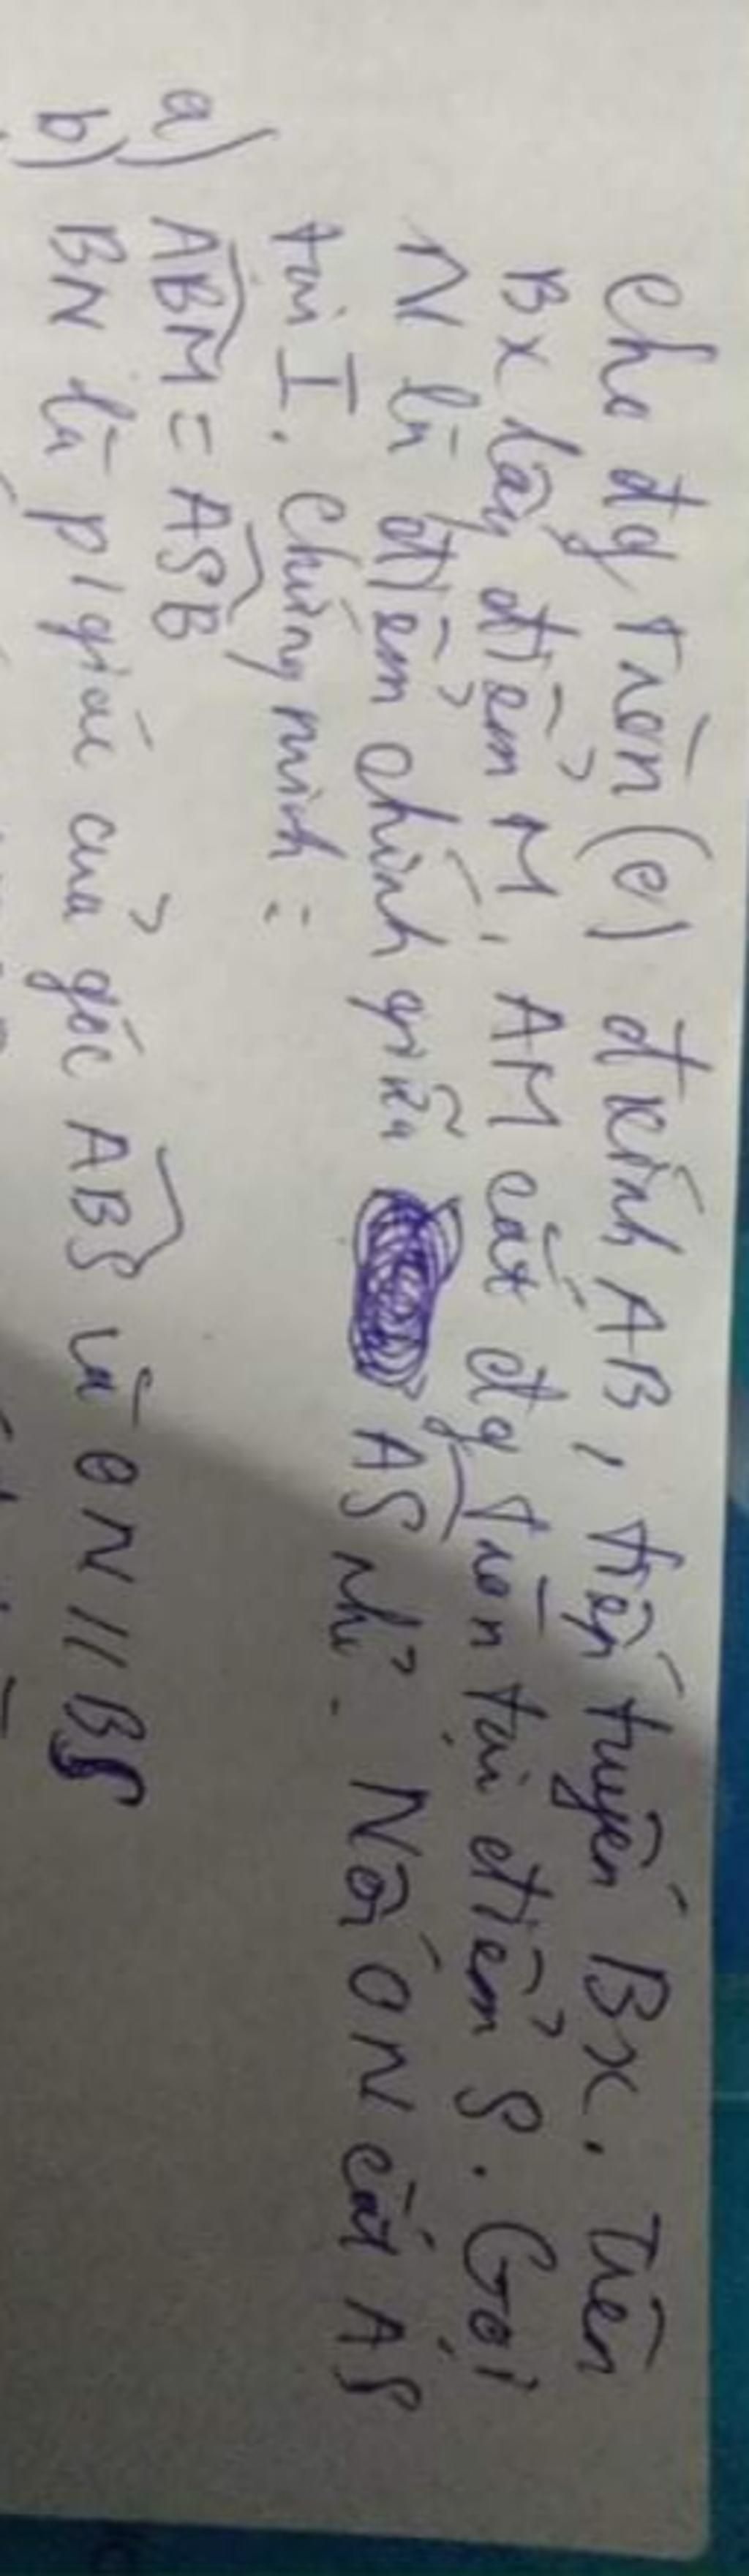 Cho đg tròn (O) đkính AB, tiếp tuyến Bx. Trên
Bx lấy điểm M, AM cắt đg tròn tại điểm S. Gọi
N là điểm chính giữa AS nhỏ. Nối ON cắt AS
tại I. Chứng minh:
a) ABM = ASB
b) BN là p/giác của góc ABS và ON // BS